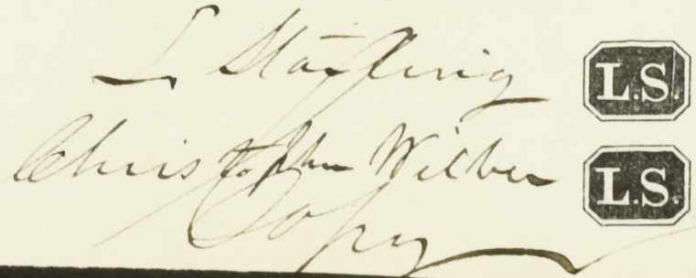 L Starling L.S.
Christopher Wilber L.S.
Copy